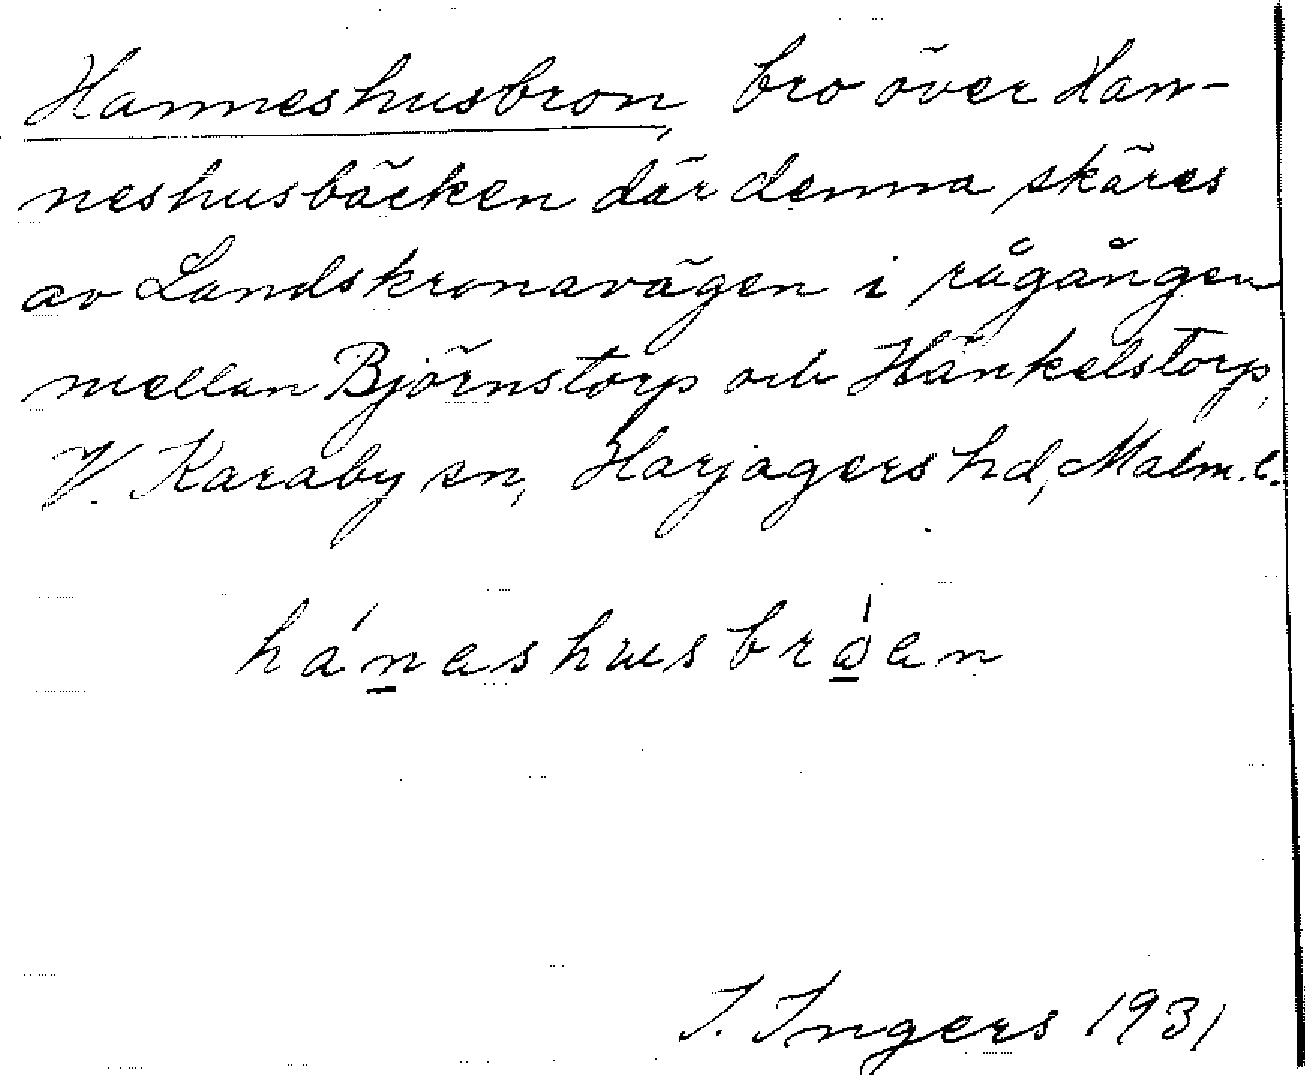 Hanneshusbron, bro över Han-
neshusbäcken där denna skäres
av Landskronavägen i rågången
mellan Björnstorp och Hänkelstorp,
V. Karaby sn, Harjagers hd, Malm. l.
hánashusbróen
I. Ingers 1931